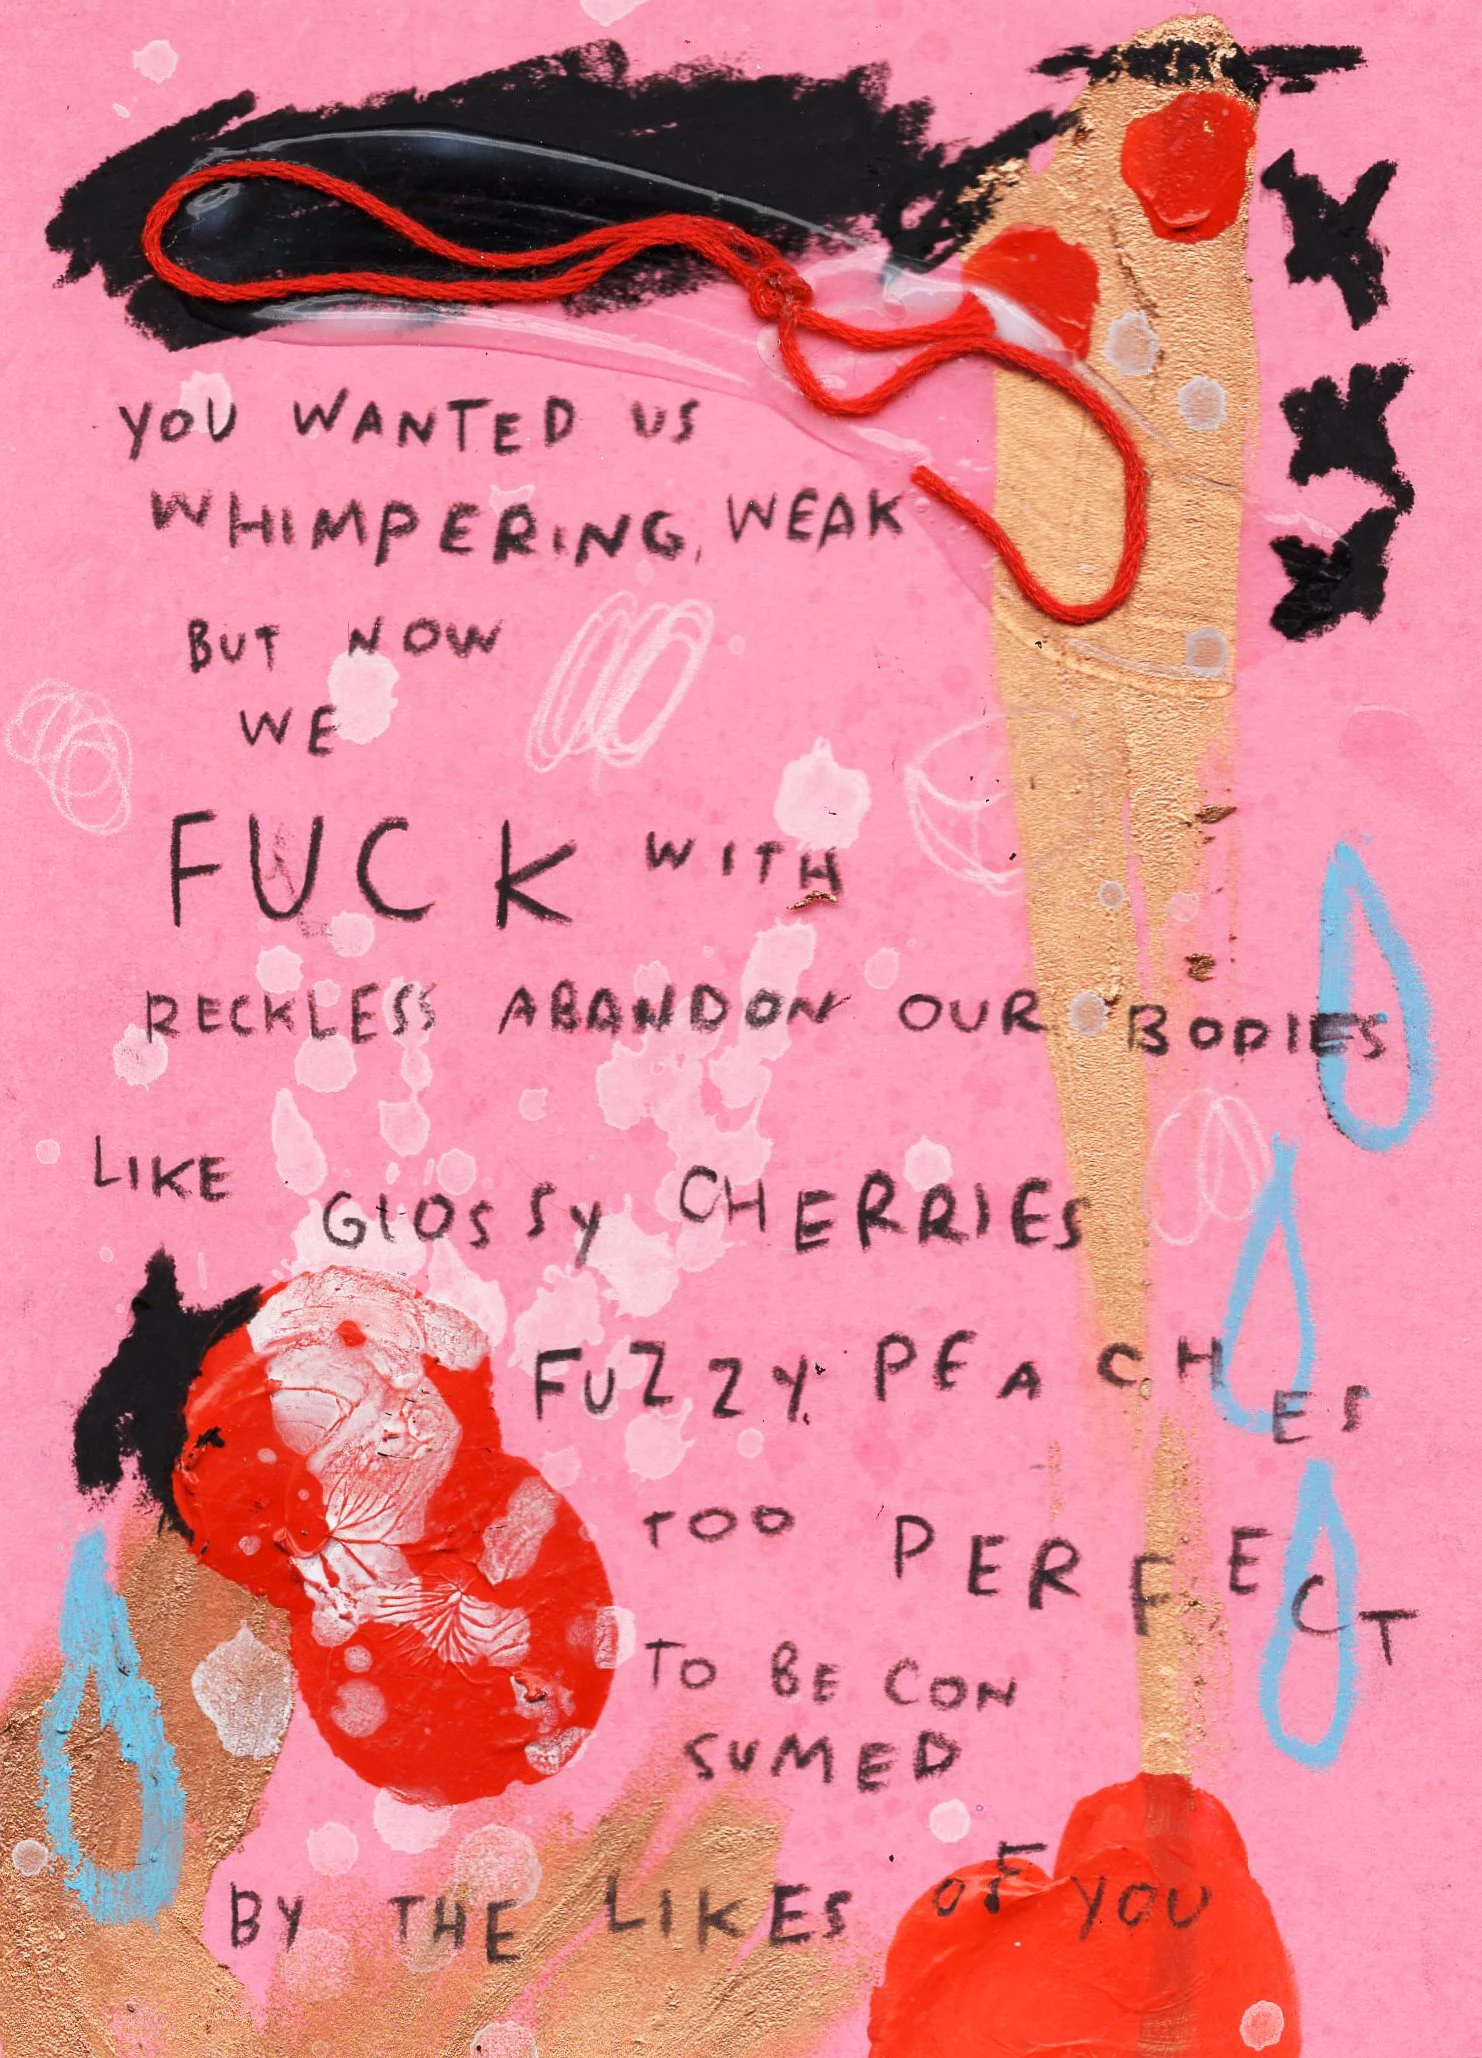 YOU WANTED US
WHIMPERING, WEAK
BUT NOW
WE
FUCK WITH
RECKLESS ABANDON OUR BODIES
LIKE GLOSSY CHERRIES
FUZZY PEACHES
TOO PERFECT
TO BE CON
SUMED
BY THE LIKES OF YOU